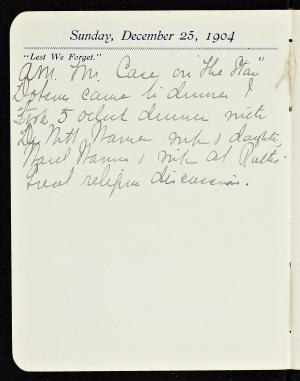 Sunday, December 25, 1904
"Lest We Forget."
A.M. Mr. Case on "The Star"
came to dinner. I
took 5 oclock dinner with
Warner wife & daughter,
Warner & wife at
Great religious discussion.